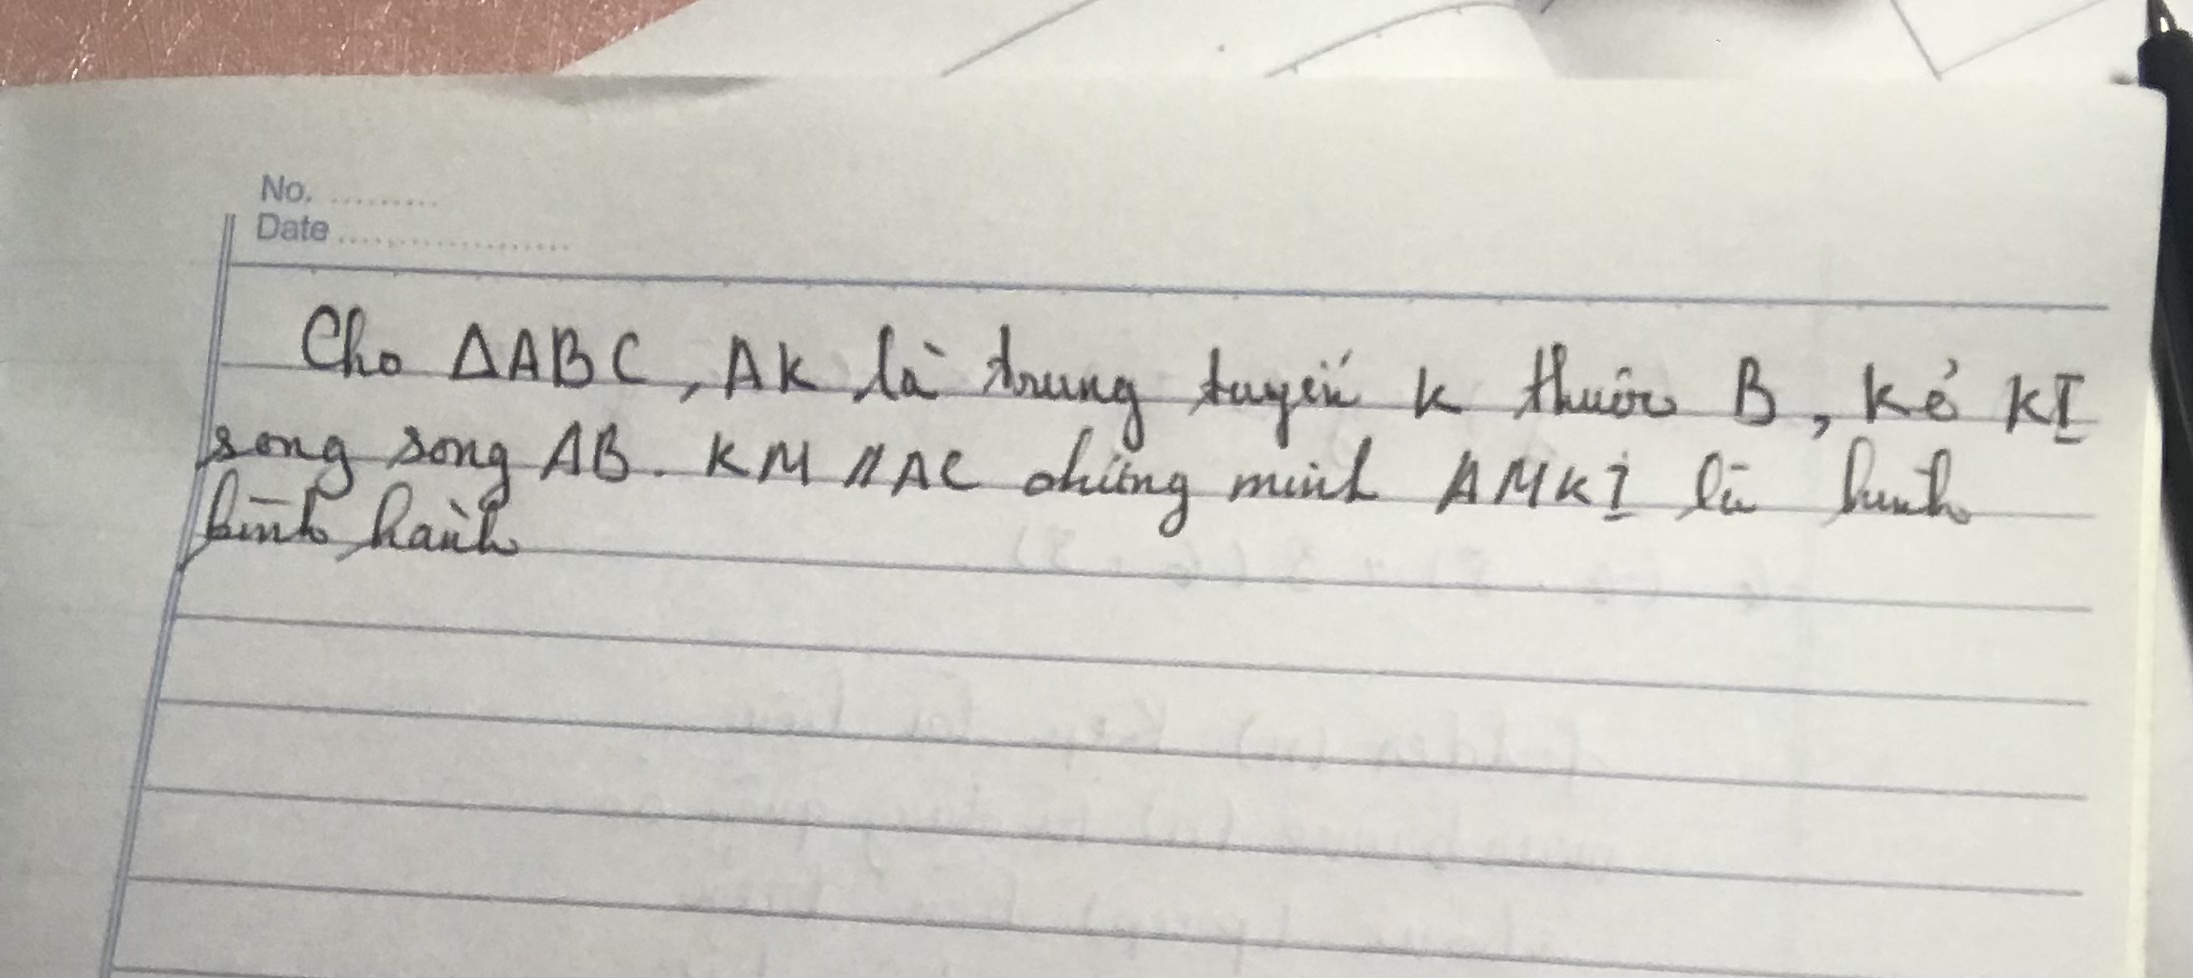 No. .........
Date ...................
Cho ΔABC, AK là trung tuyến k thuộc B, kẻ KI
song song AB. KM // AC chứng minh AMKI là hình
bình hành